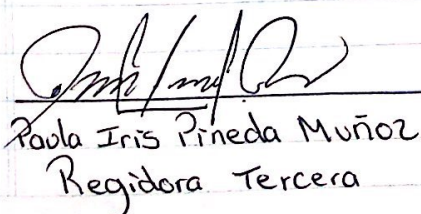 Paola Iris Pineda Muñoz
Regidora Tercera